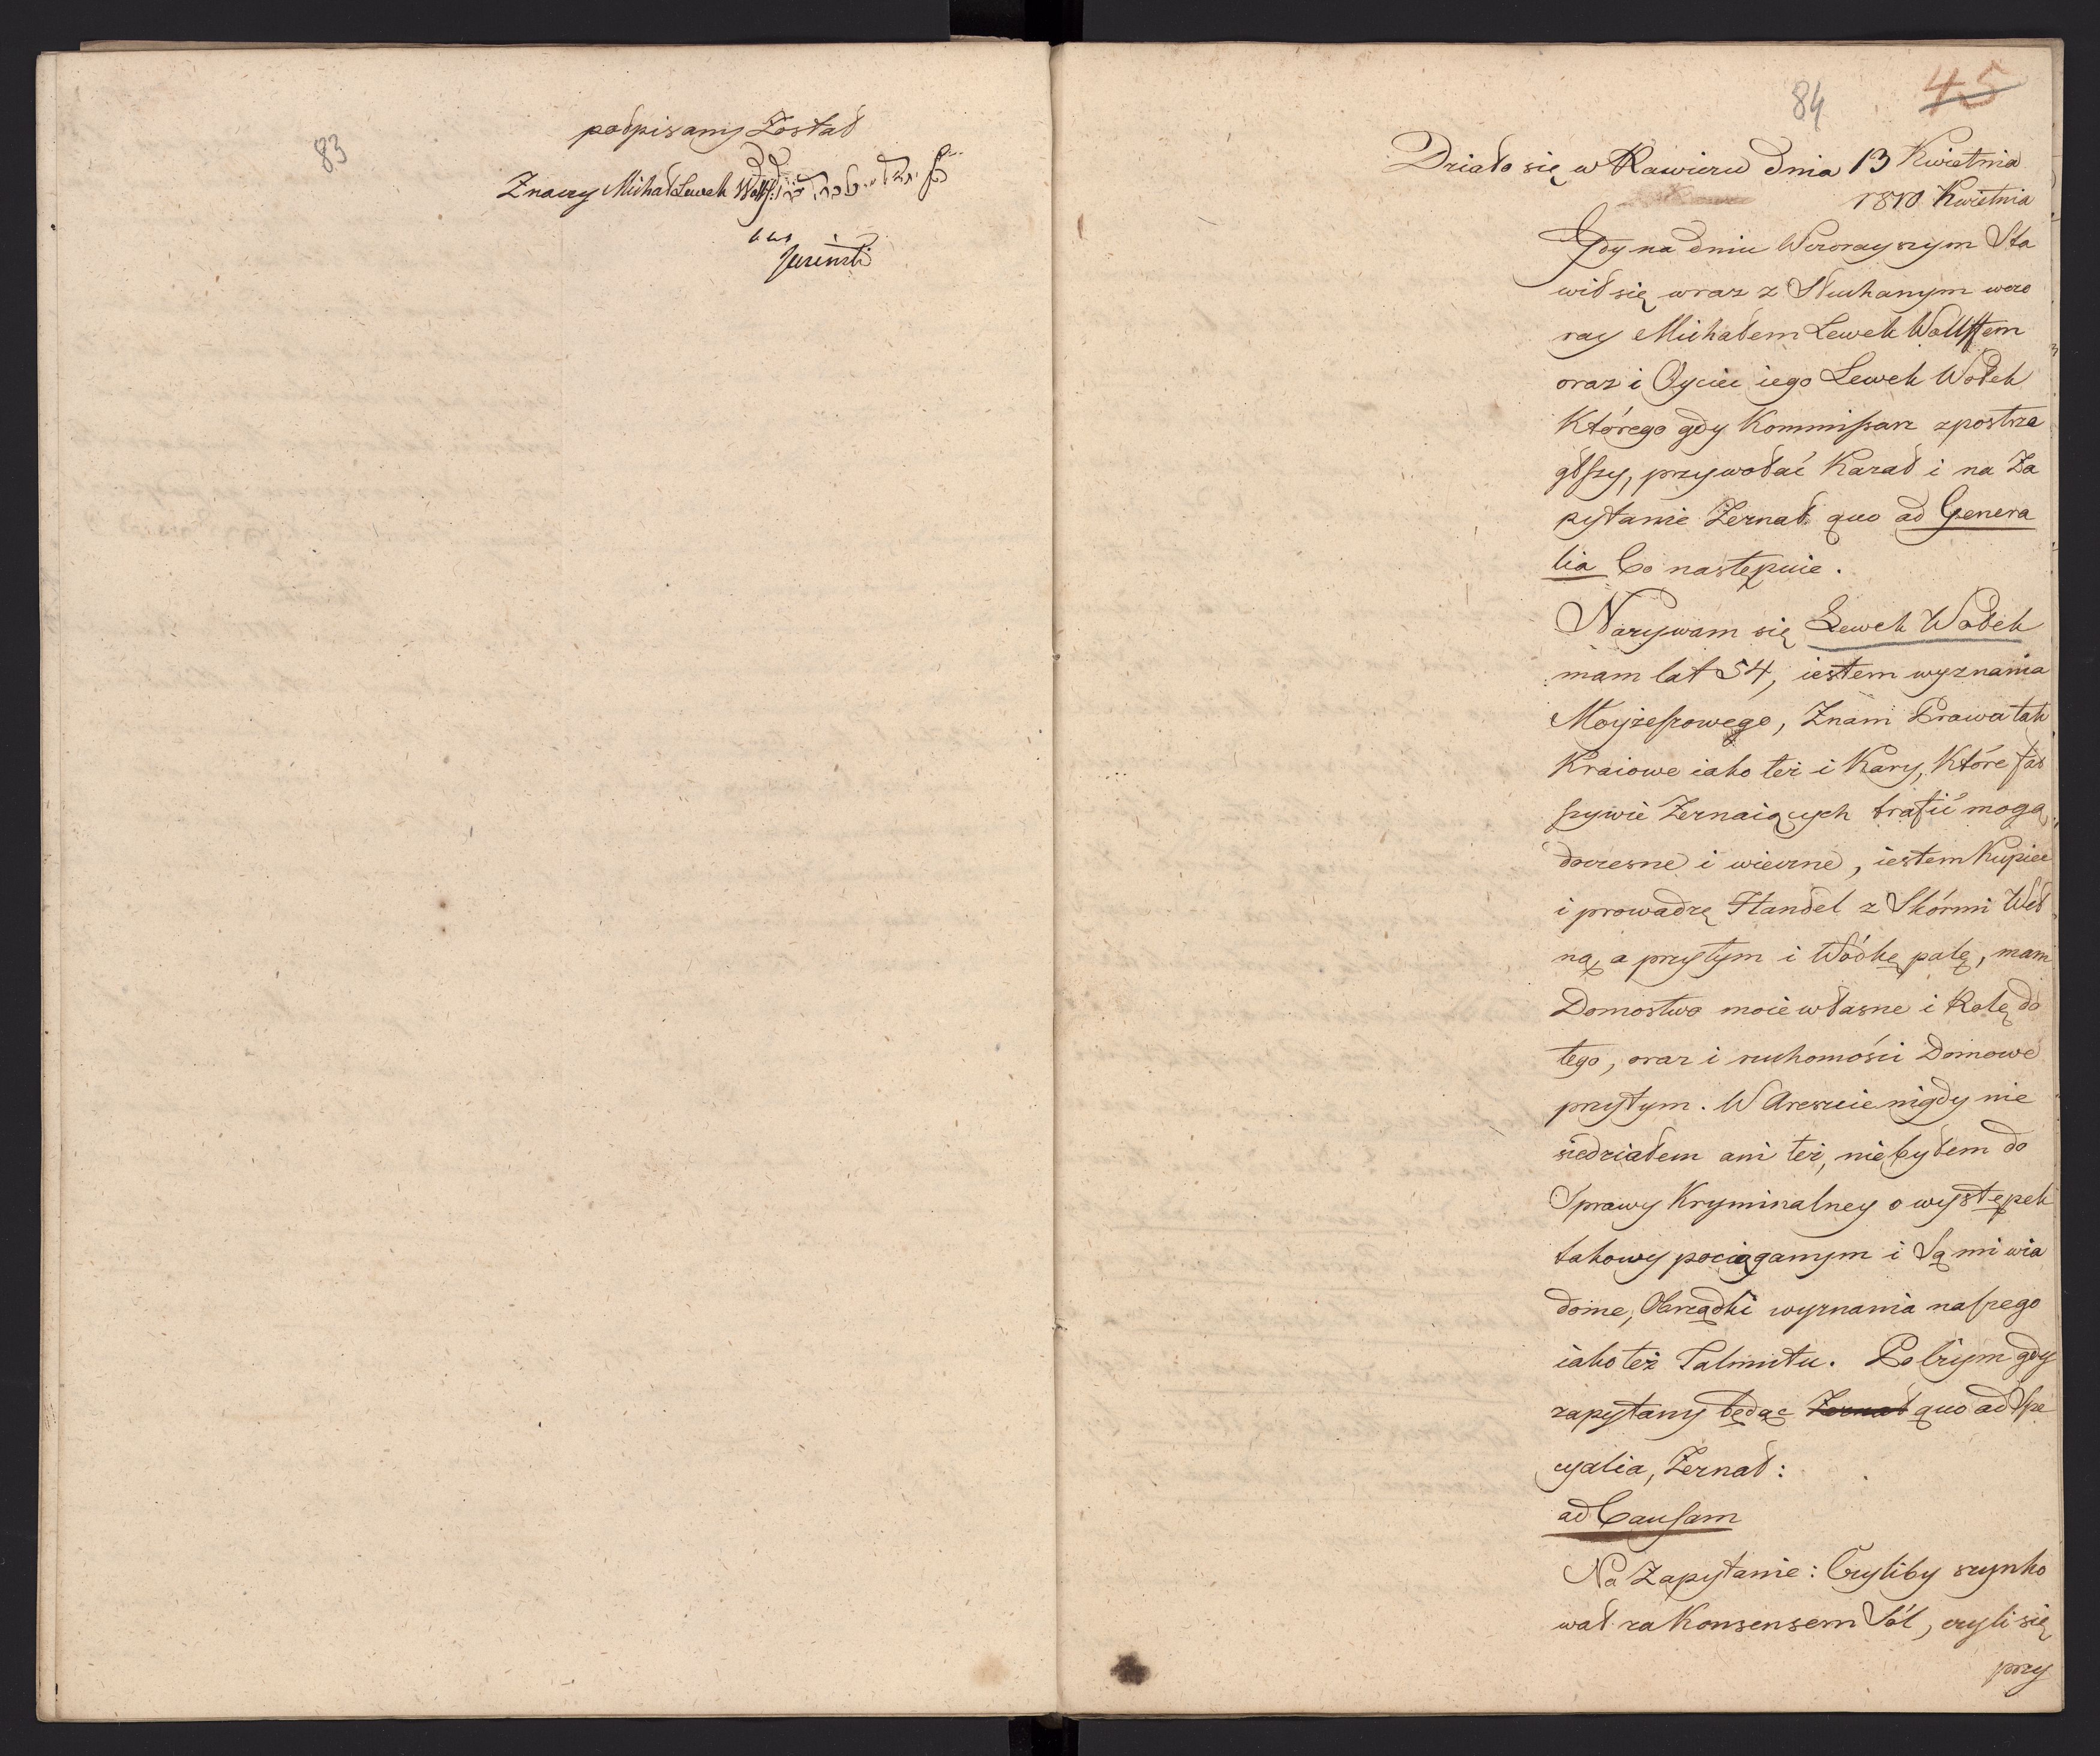 83
podpisany Został
Znaczy Michał Lewek Wolff.
Jasiński
84
45
Działo się w Rawiczu dnia 13 Kwietnia
1810 Kwietnia
Gdy na dniu Wczorayszym Sta
wił się wraz z Słuchanym wczo
ray Michałem Lewek Wollffem
oraz i Oyciec iego Lewek Wołek
Którego gdy Kommissarz zpostrze
głszy, przywołać Kazał i na Za
pytanie Zeznał quo ad Genera
lia Co następuie.
Nazywam się Lewek Wołek
mam lat 54, iestem wyznania
Moyżeszowego, Znam Prawa tak
Kraiowe iako też i Kary, Które fał
szywie Zeznaiących trafić mogą
doczesne i wieczne, iestem Kupiec
i prowadzę Handel z Skórmi Weł
ną, a przytym i Wódkę palę, mam
Domostwo moie własne i Rolę do
tego, oraz i ruchomości Domowe
przytym. W Areszcie nigdy nie
siedziałem ani też, nie byłem do
Sprawy Kryminalney o występek
takowy pociąganym i Są mi wia
dome, Obrządki wyznania naszego
iako też Talmutu. Po czym gdy
zapytany będąc Zeznał quo ad Spe
cyalia, Zeznał:
ad Causam
Na Zapytanie: Czyliby szynko
wał za Konsensem Sól, czyli się
przy